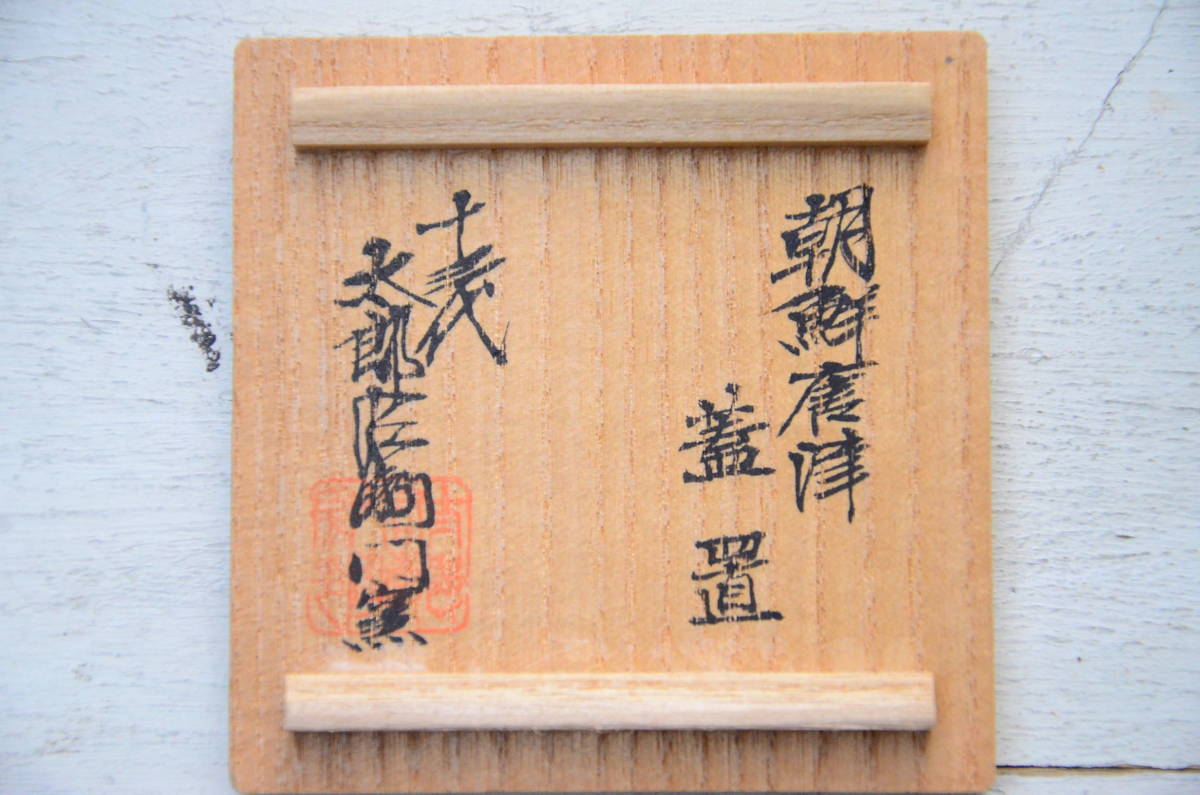 朝鮮唐津
蓋置
十三代
太郎右衛門窯